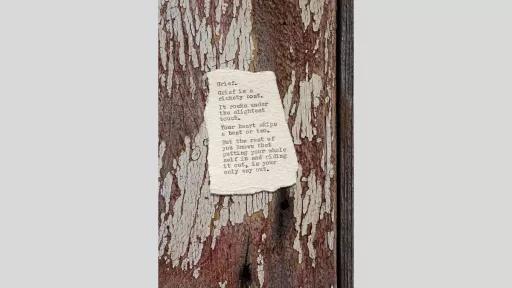 Grief.
Grief is a
rickety boat.
It rocks under
the slightest
touch.
Your heart skips
a beat or two.
But the rest of
you knows that
putting your whole
self in and riding
it out, is your
only way out.